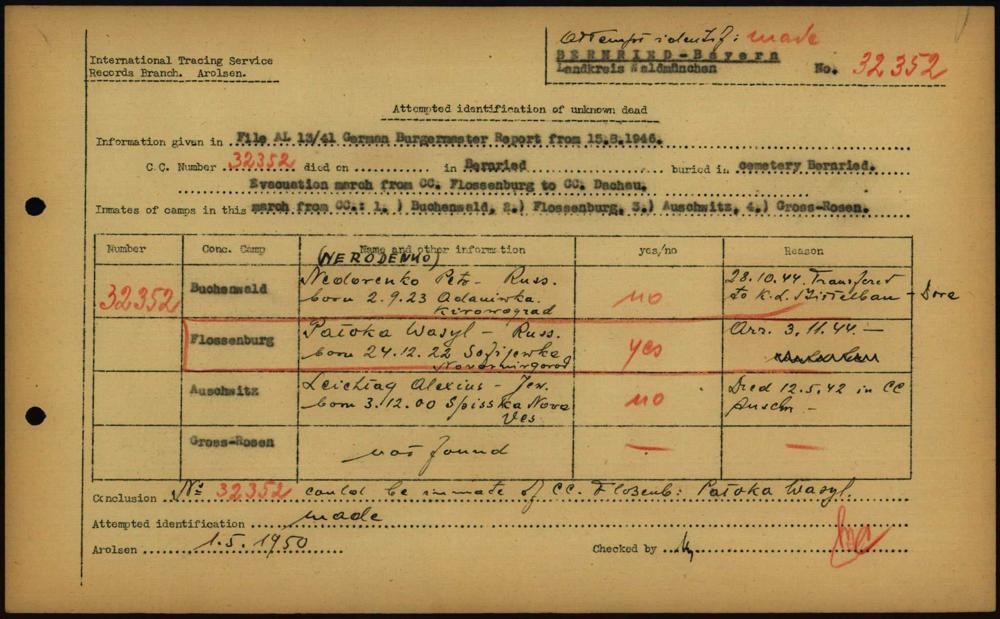 Attempt identif: made
International Tracing Service
Records Branch. Arolsen.
BERNRIED-Bayern
Landkreis Waldmünchen
No. 32352
Attempted identification of unknown dead
Information given in File AL 13/41 German Burgermaster Report from 15.8.1946.
C.C. Number 32352 died on ........... in Bernried buried in cemetery Bernried.
Evacuation march from CC. Flossenburg to CC. Dachau.
Inmates of camps in this march from CC.: 1.) Buchenwald, 2.) Flossenburg, 3.) Auschwitz, 4.) Gross-Rosen.
Number Conc. Camp Name and other information yes/no Reason
(NERODENKO)
32352 Buchenwald Nedorenko Petr - Russ. no 28.10.44 Transfered
born 2.9.23 Adamiwka. to K.L. Mittelbau - Dora
Kirowograd
Flossenburg Patoka Wasyl - Russ. yes Arr. 3.11.44 -
born 24.12.22 Sofijewka
Novomirgorod
Auschwitz Leichtag Alexius - Jew. no Died 12.5.42 in CC
born 3.12.00 Spisska Nova Auschw -
Ves
Gross-Rosen not found — —
Conclusion No 32352 could be inmate of CC. Flossenb: Patoka Wasyl.
Attempted identification made
Arolsen 1.5.1950 Checked by